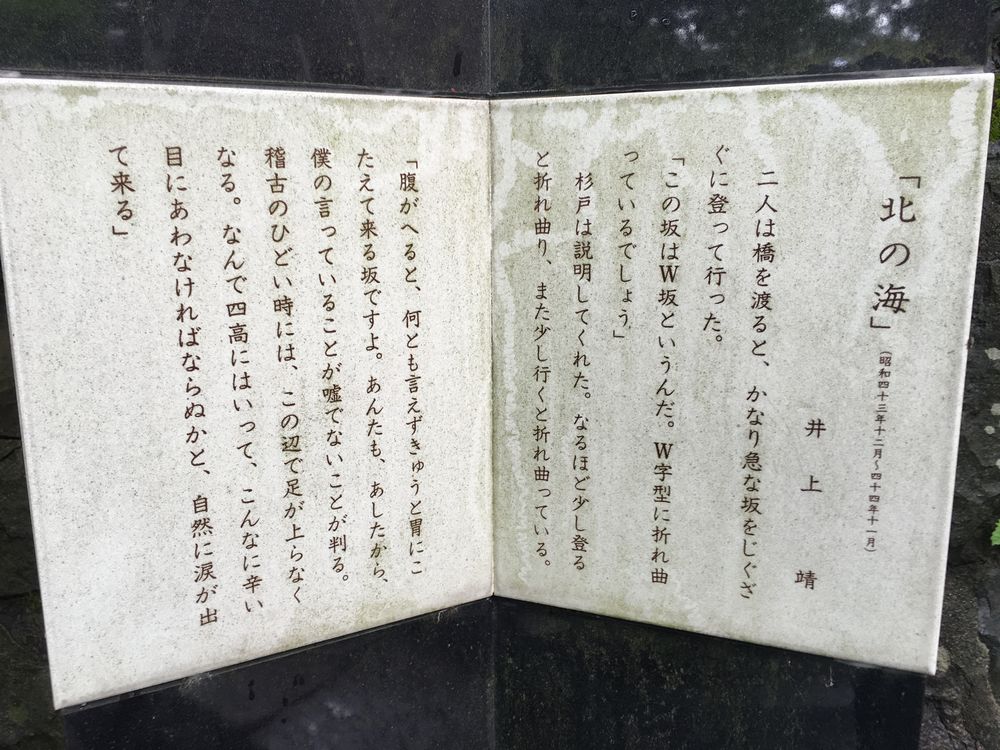 「北の海」(昭和四十三年十二月〜四十四年十一月)
井上　靖
二人は橋を渡ると、かなり急な坂をじぐざ
ぐに登って行った。
「この坂はW坂というんだ。W字型に折れ曲
っているでしょう」
杉戸は説明してくれた。なるほど少し登る
と折れ曲り、また少し行くと折れ曲っている。
「腹がへると、何とも言えずきゅうと胃にこ
たえて来る坂ですよ。あんたも、あしたから、
僕の言っていることが嘘でないことが判る。
稽古のひどい時には、この辺で足が上らなく
なる。なんで四高にはいって、こんなに辛い
目にあわなければならぬかと、自然に涙が出
て来る」